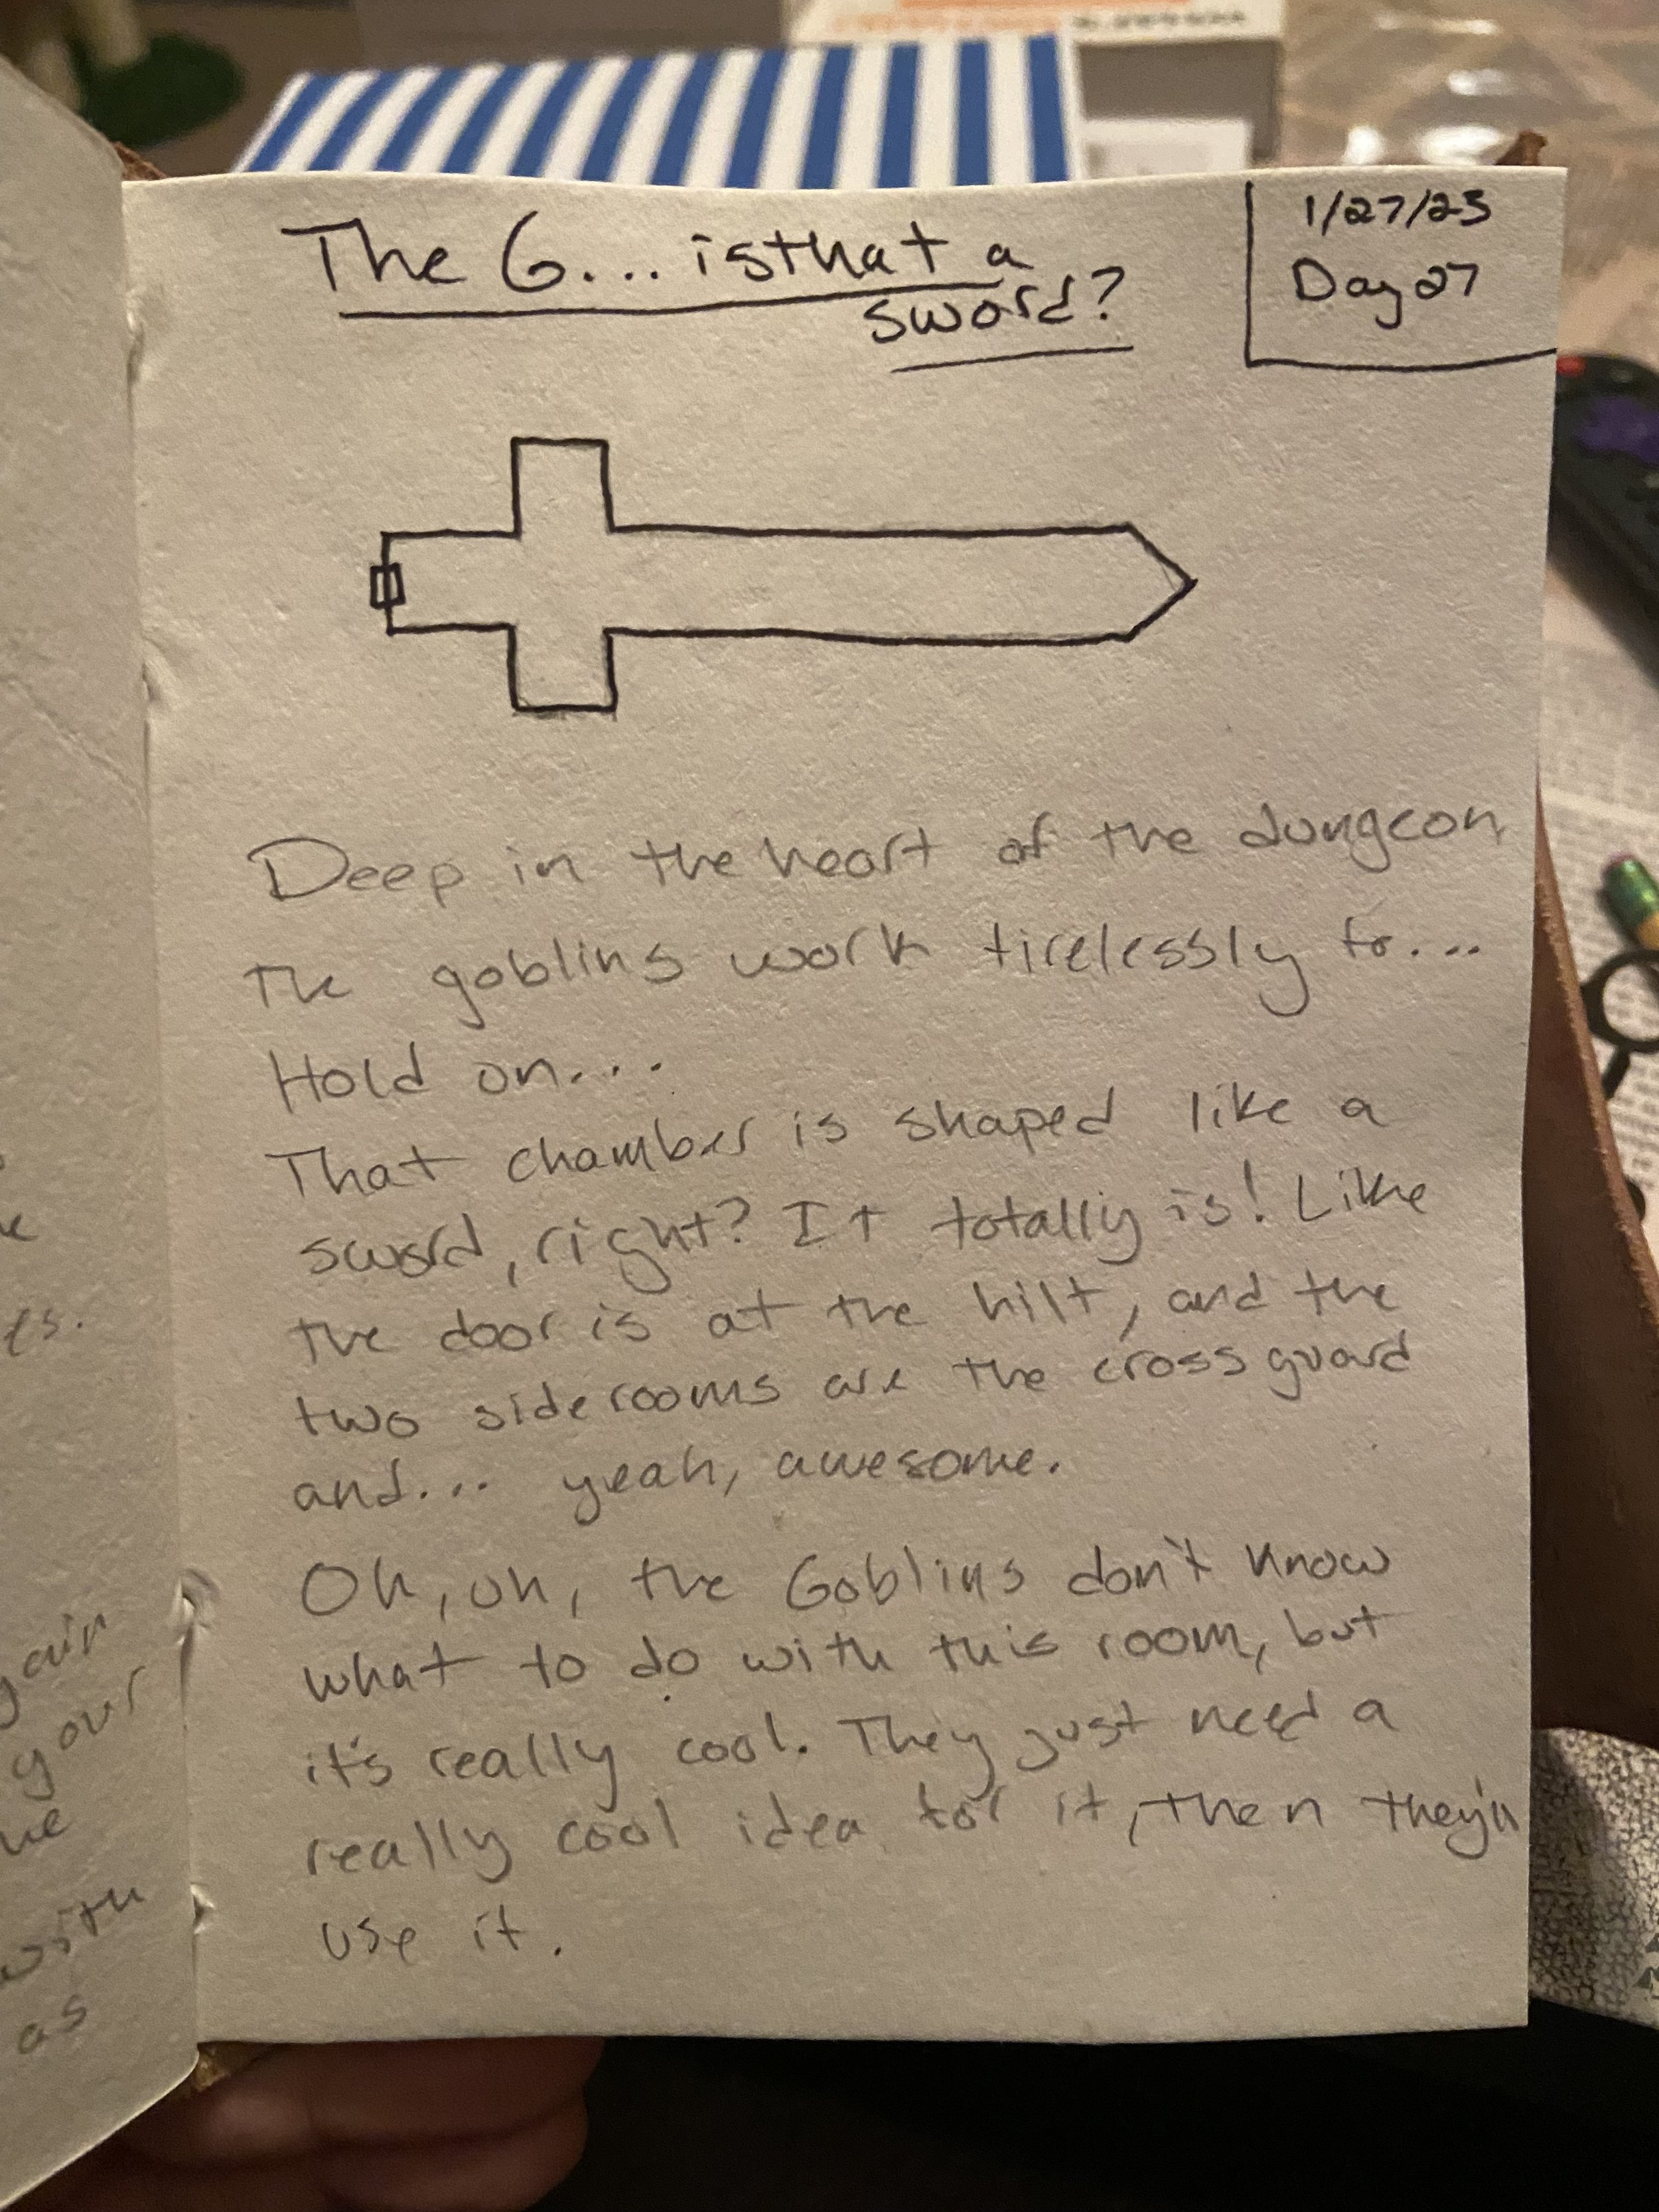 The G... is that a
sword?
1/27/23
Day 27
Deep in the heart of the dungeon
the goblins work tirelessly to....
Hold on...
That chamber is shaped like a
sword, right? It totally is! Like
the door is at the hilt, and the
two side rooms are the crossguard
and... yeah, awesome.
Oh, oh, the Goblins don't know
what to do with this room, but
it's really cool. They just need a
really cool idea for it, then they'll
use it.
es.
your
with
as